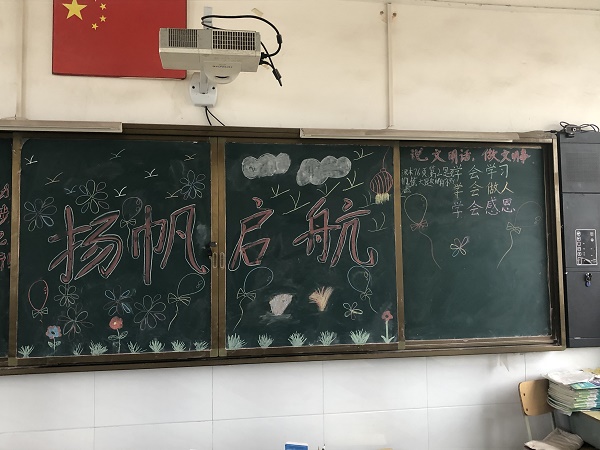 扬帆启航
说文明话,做文明事
学会学习
学会做人
学会感恩